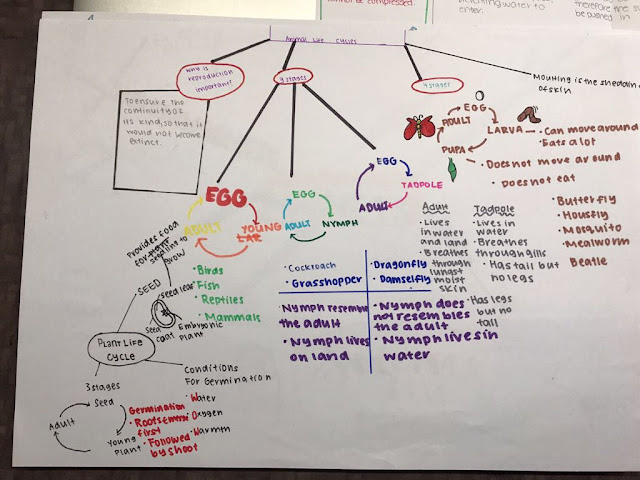 cannot be compressed.
water to
enter.
therefore the
be pushed in
Animal Life cycles
Why is
reproduction
important?
4 stages
Moulting is the sheddin
of skin
To ensure the
continuity of
its kind, so that it
would not become
extinct.
EGG
ADULT
YOUNG
EGG
ADULT
NYMPH
EGG
TADPOLE
ADULT
EGG
ADULT
LARVA
PUPA
• Can move around
• Eats a lot
• Does not move around
• Does not eat
• Butterfly
• Housfly
• Mosquito
• Mealworm
Beatle
• Birds
• Fish
• Reptiles
• Mammals
• Cockroach
• Grasshopper
• Dragonfly
• Damselfly
• Nymph resemble
the adult
• Nymph lives
on land
• Nymph does
not resembles
the adult
• Nymph lives in
water
Adult
• Lives
in water
and land
• Breathes
through
lungs +
moist
skin
• Has legs
but no
tail
Tadpole
• Lives in
water
• Breathes
through gills
• Has tail but
no legs
Provides food
for plant
seedling to
grow
SEED
seed leaf
seed
coat
Embryonic
plant
PLANT LIFE
CYCLE
3 stages
Seed
Adult
Young
Plant
Germination
• Roots emerge
first
• Followed
by shoot
Conditions
For Germination
• Water
• Oxygen
• Warmth